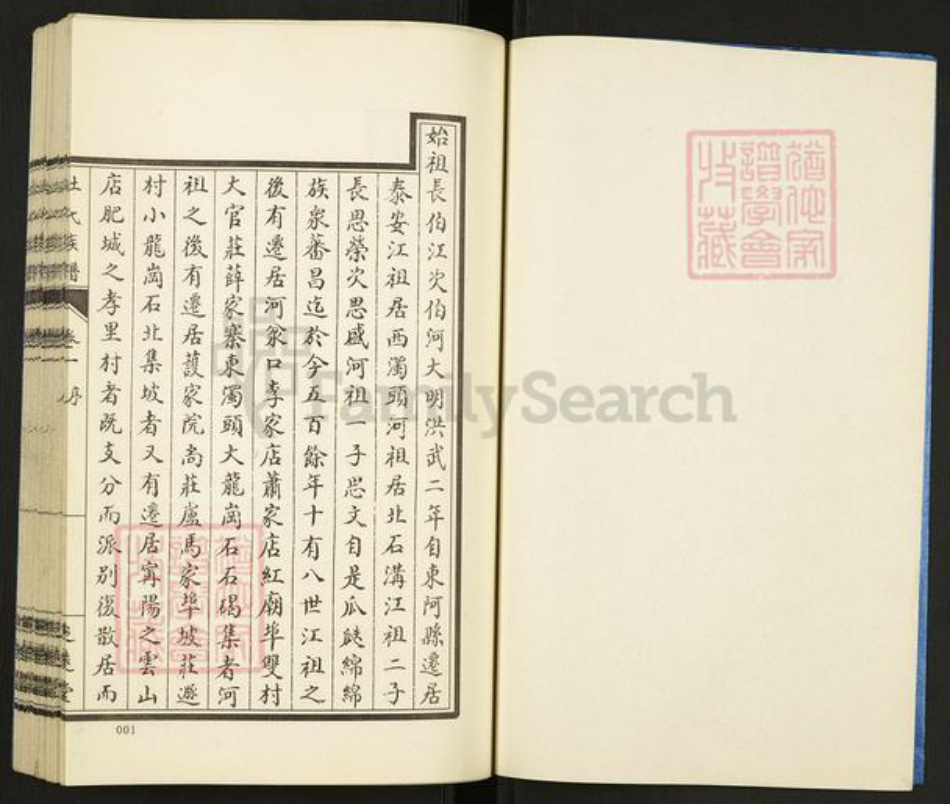 始祖長伯江次伯河大明洪武二年自東阿縣遷居
泰安江祖居西濁頭河祖居北石溝江祖二子
長思榮次思盛河祖一子思文自是瓜瓞綿綿
族衆蕃昌迄於今五百餘年十有八世江祖之
後有遷居河衆口李家店蕭家店紅廟埠雙村
大官莊薛家寨東濁頭大龍崗石石碣集者河
祖之後有遷居護家院尚莊盧馬家埠坡莊遯
村小龍崗石北集坡者又有遷居甯陽之雲山
店肥城之孝里村者既支分而派別復散居而
杜氏族譜
卷一
序
001
譜學會
收藏
FamilySearch